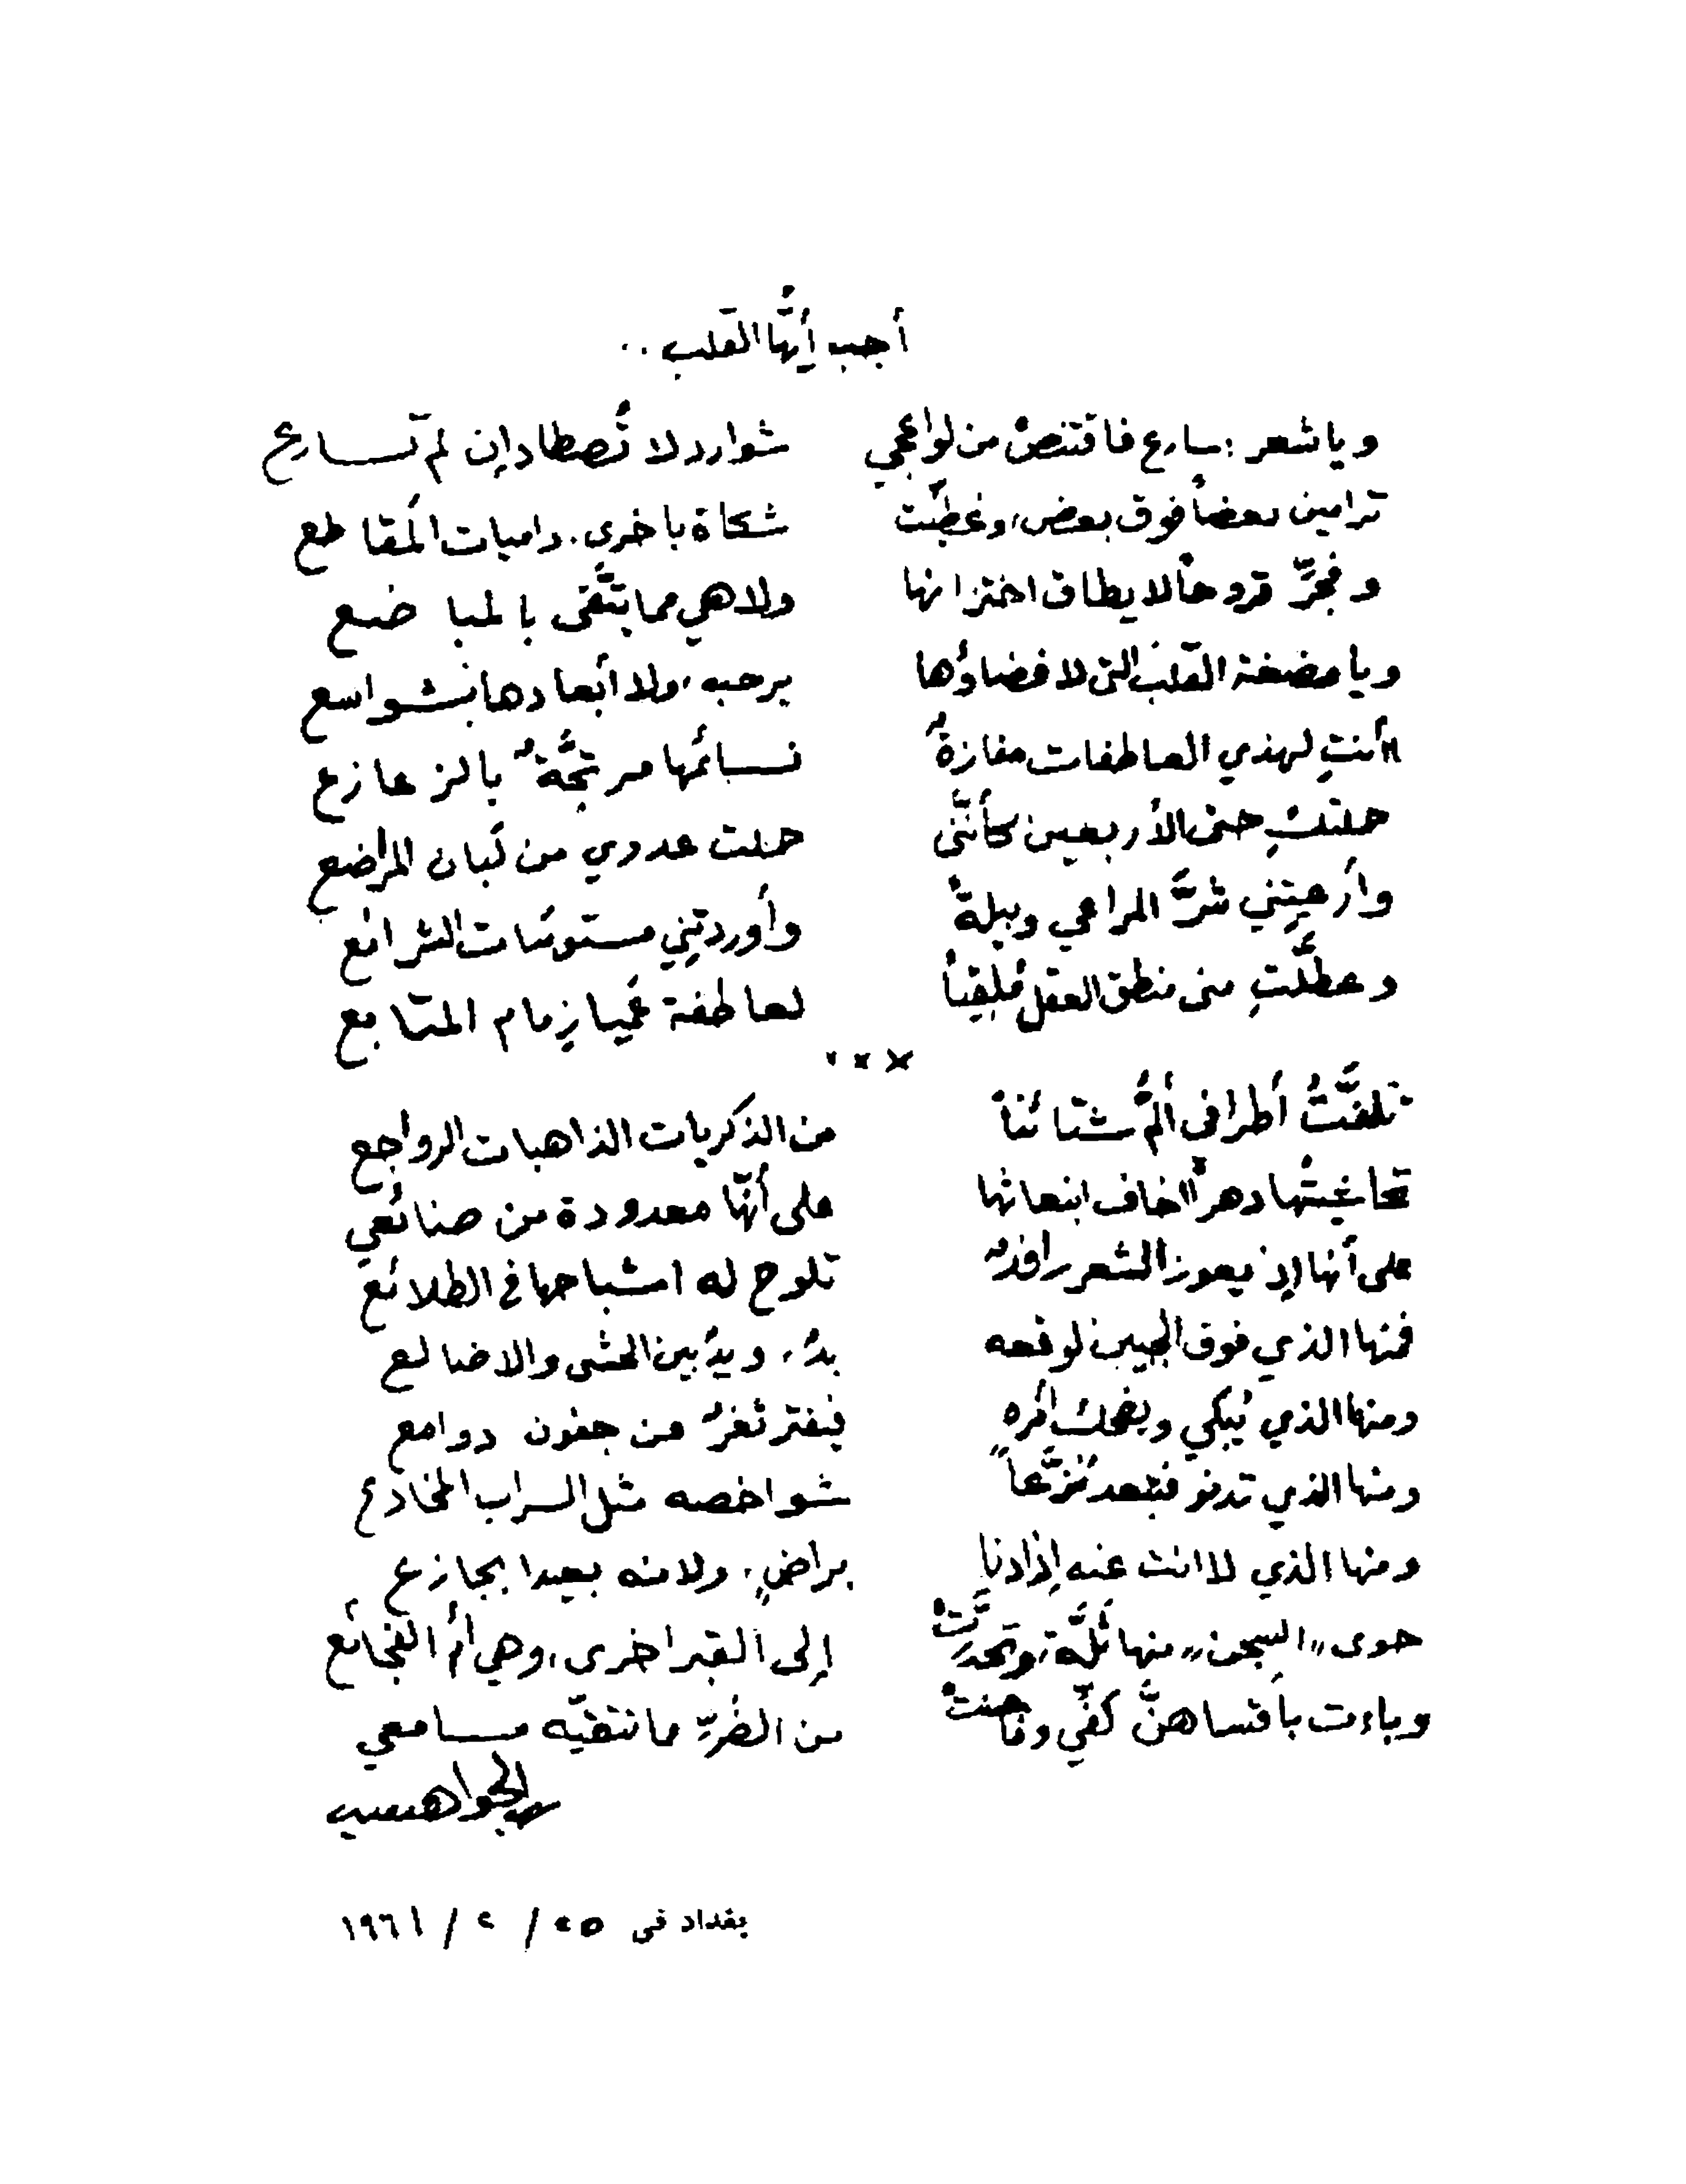 أجب أيُّها القلب ..
ويا شعر : سارع فاقتنصْ من لواعجي شوارد لا تُصطاد إن لم تسارع
ترامين بعضاً فوق بعض، وغطّيت شكاة باخرى، داميات المقاطع
وفجرِّ قروحاً لا يطاق اختزانها ولا هي مما يتَّقى بالمباضع
ويا مضغة القلب التي لا فضاؤها برحبه، ولا أبعادها بشواسع
أأنتِ لهذي العاطفات مفازةٌ نسائمها مرتجَّةٌ بالزعازع
حملتكِ حتى الأربعين كأنّني حملت عدوي من لَبان المراضع
وأرعيتِني شرَّ المراعي وبيلةً وأوردتِني مستوبئات الشرائع
وعطَّلتِ مني منطق العقل مُلقياً لعاطفة عَميا زمام المتابع
×××
تلفَّتُّ أطرافي ألمُّ شتائتاً من الذكريات الذاهبات الرواجع
تحاشيتُها دهراً اخاف انبعاثها على أنّها معدودة من صنائعي
على أنها إذ يعوز الشعر رافدٌ تلوح له اشباحها في الطلائع
فمنها الذي فوق الجبين لوقعه يدٌ، ويدٌ بين الحشى والاضالع
ومنها الذي يُبكي ويضحك أمره فيفتر ثغرٌ عن جفون دوامع
ومنها الذي تدنو فتبعد نُزَّعاً شواخصه مثل السراب المخادع
ومنها الذي لا انت عنه إذا دنا براضٍ، ولا منه بعيدا بجازع
حوى "السجن" منها ثلَّة، وتحدَّرتْ إلى القبر اخرى، وهي أم الفجائع
وباءت بأقساهنَّ كفّي وما جنتْ من الضُرِّ مما تتقيّه مسامعي
الجواهري
بغداد في ٢٥ / ٢ / ١٩٦١